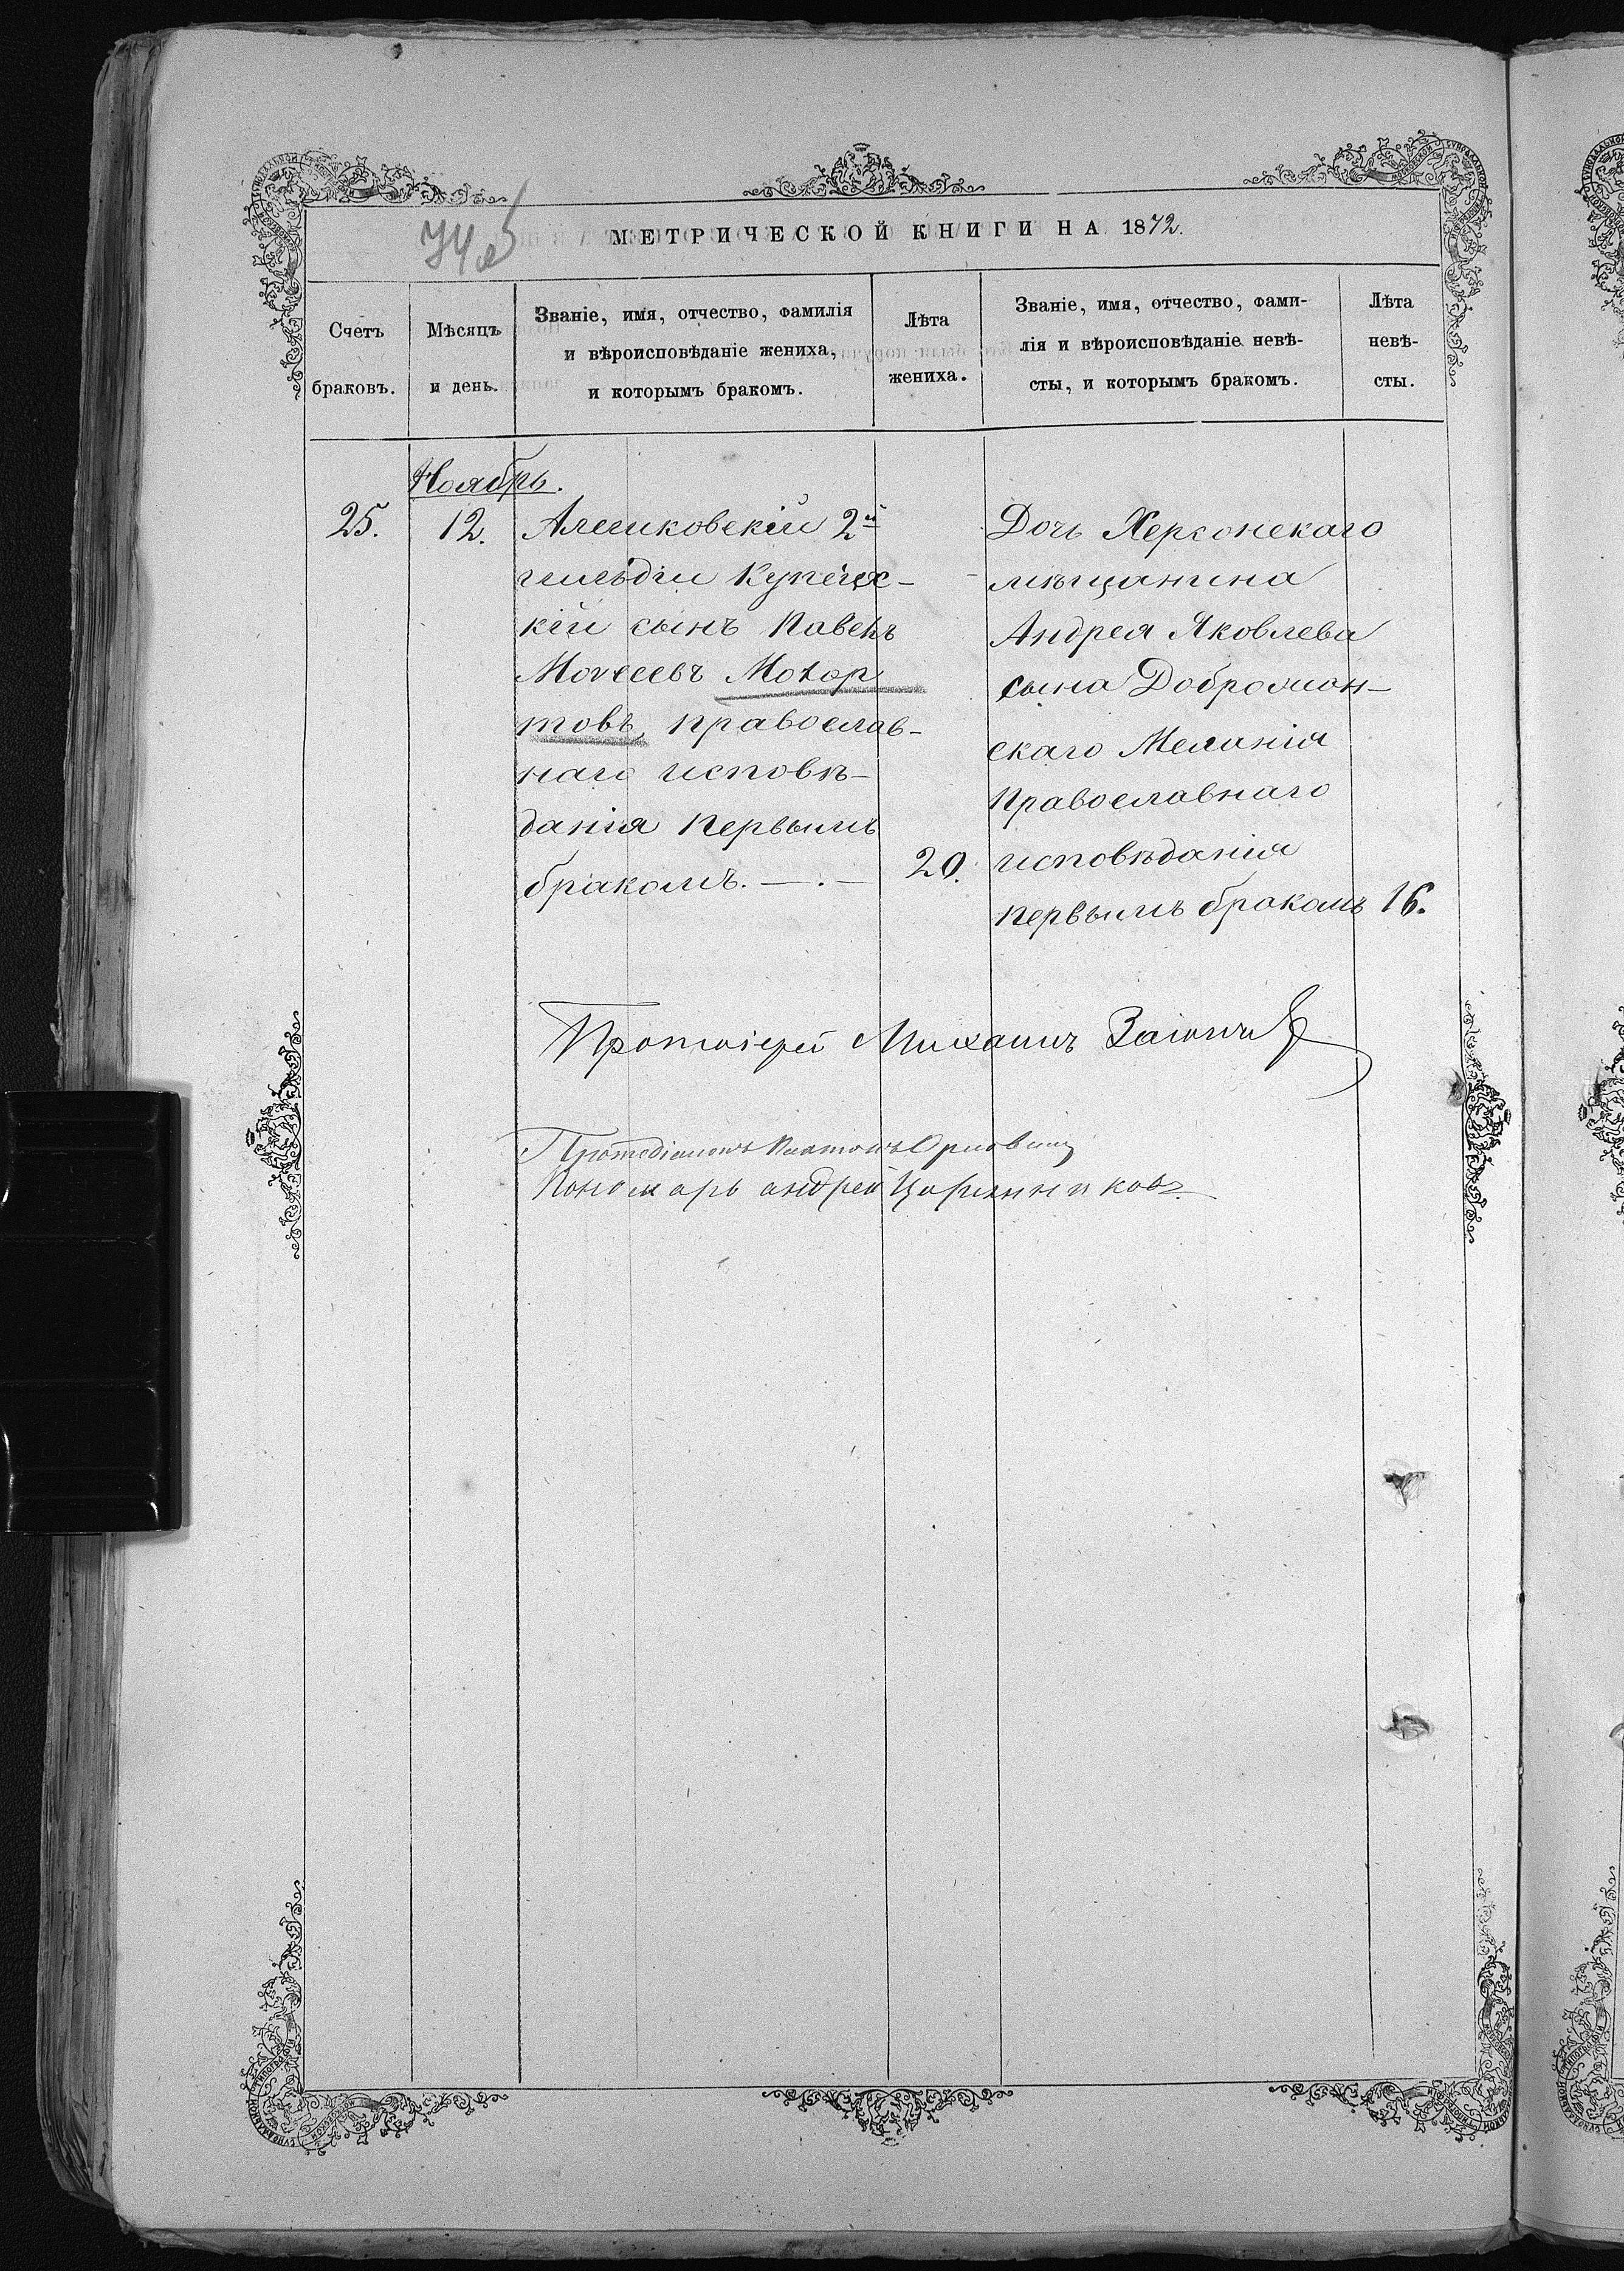 МЕТРИЧЕСКОЙ КНИГИ НА 1872.
Счетъ браковъ.
Мѣсяцъ и день.
Званіе, имя, отчество, фамилія
и вѣроисповѣданіе жениха,
и которымъ бракомъ.
Лѣта жениха.
Званіе, имя, отчество, фами-
лія и вѣроисповѣданіе невѣ-
сты, и которымъ бракомъ.
Лѣта невѣ-
сты.
Ноябрь.
25.
12.
Алешковскій 2й
гильдіи Купечес-
кій сынъ Павелъ
Моѵсеевъ Мокор
товъ, православ-
наго исповѣ-
данія первымъ
бракомъ.
20.
Дочь Херсонскаго
мѣщанина
Андрея Яковлева
сына Добромон-
скаго Меланія
Православнаго
исповѣданія
первымъ бракомъ
16.
Протоіерей Михаилъ
Протодіаконъ Платонъ
Пономарь андрей